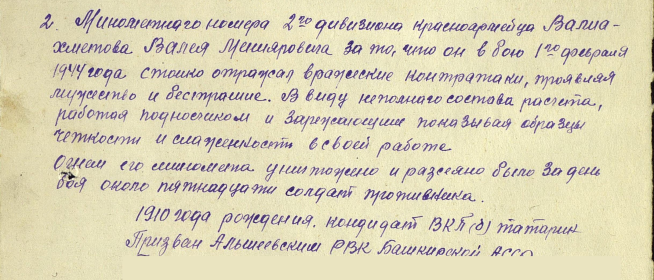 2. Минометнаго номера 2го дивизиона красноармейца Валиа-
хметова Валея Минияровича за то, что он в бою 1го февраля
1944 года стойко отражал вражеские контратаки, проявляя
мужество и бесстрашие. В виду неполнаго состава расчета,
работая подносчиком и заряжающим показывая образцы
четкости и слаженности в своей работе
Огнем его миномета уничтожено и рассеяно было за день
боя около пятнадцати солдат противника.
1910 года рождения. кондидат ВКП(б) татарин
Призван Альшеевским РВК Башкирской АССР